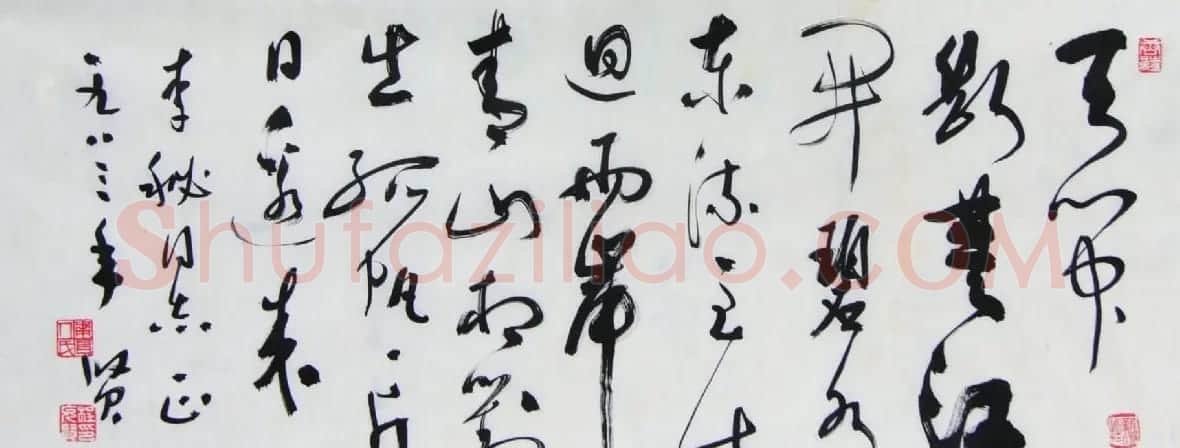 天门中
断楚江
开碧水
东流至此
回两岸
青山相对
出孤帆一片
日边来
李秘同志正
一九八三年 贤
Shufaziliao.com